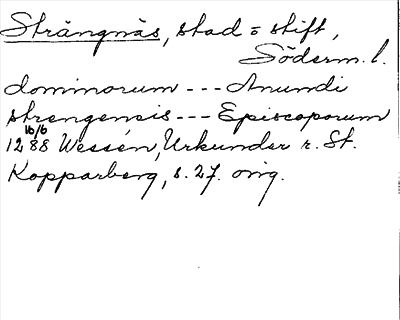 Strängnäs, stad o stift,
Söderm. l.
dominorum --- Anundi
strengensis --- Episcoporum
16/6
1288 Wessén, Urkunder r. St.
Kopparberg, s. 27. orig.